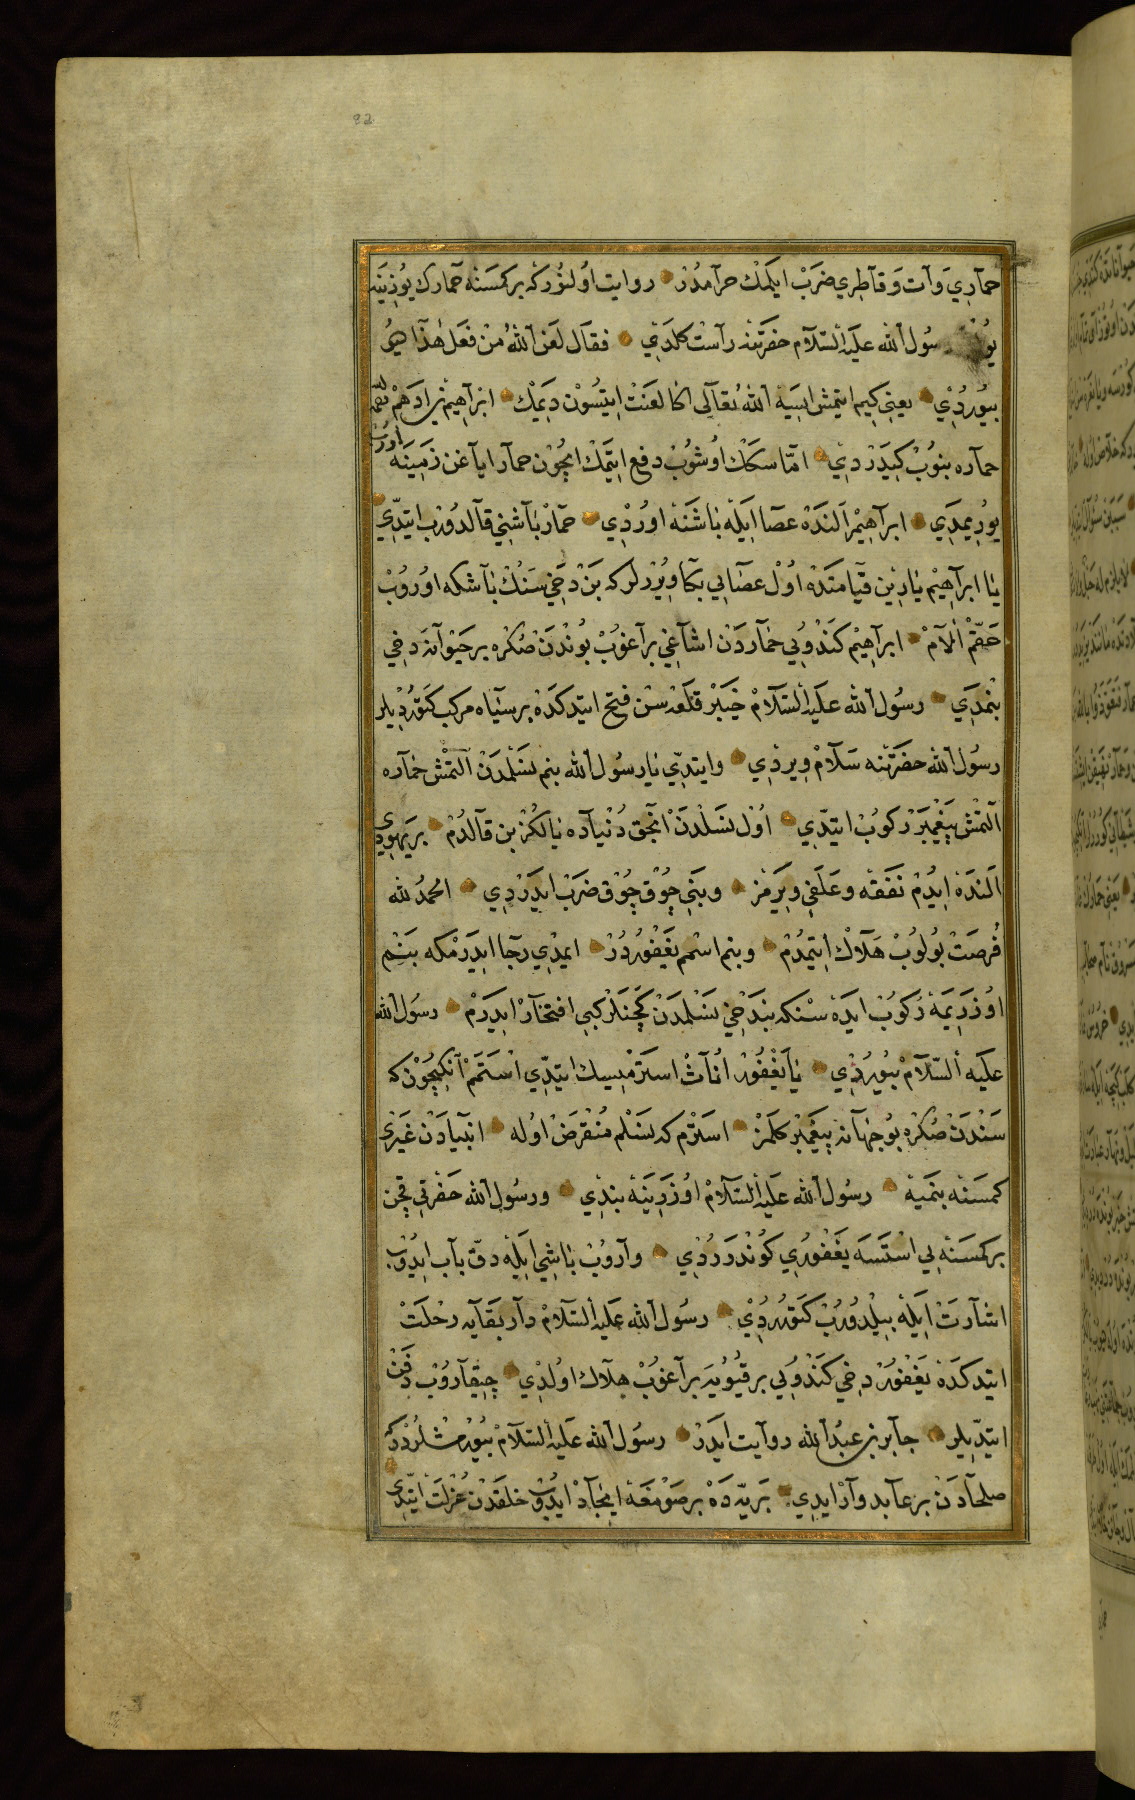 82
حمآرِي وَآت وَقآطرِي ضَرَبْ ايلَمَك حرآمدُرْ روايت اوُلنوُركه بركمسَنه حمارك يوُزِينه
يوُ سُول الله عليه السّلام حضرَتنه رآست كلدَي فقال لعَنَ اللهُ مَنْ فعَل هٰذا ديُو
بيُورُدْي يعنِي كِيم ايتمش ايسَيه الله تعالى اكا لعنَتْ ايتسُون دِيَمك ابرآهيم بن ادَهَم
حماره بنوُبْ كيدَرْدِي امّا سكَك اوُشُوب دفع ايتمَك ايچُون حمار اياغن زمَينه اورُبْ
يوُرِيمدَي ابرآهيم الندَه عصا ايله باشنه اورُدْي حمآر باشِني قالدُورُب ايتدِّي
يا ابرآهيم يارِين قيامتدَه اوُل عصآيي بكا ويُرْلر كه بَنْ دَخي سنُك باشكه اورُوبْ
حقّم الام ابرآهيم كندوُيي خمآردَن اشاغي برآغوُبْ بوُندَن صُكره بر حيوآنه دخي
بنمدَي رسُول الله عليه السّلام خيبَر قلعَه سن فتح ايتدكدَه بر سياه مركب كتوُردِيلر
رسُول الله حضرَتنه سَلام ويردْي وايتدّي يا رسُول الله بنم نسلمدَن التمش خمآره
التمش پيغمبَر ركوُب ايتدّي اوُل نسلدَن انجق دُنياده يالكُز بن قالدُم بر يهوُدي
الندَه ايدُم نفقَه وعلَفي ويرَمز وبنَي چوُق چوُق ضَرَبْ ايدَردِي الحمدُ لله
فُرصَت بوُلوُب هَلاك ايتمدُم وبنم اسمم يغفوُردُر ايمدِي رجا ايدَرم كه بنم
اوُزرِيمَه رُكوُب ايدَه سنكه بندَخي نسلمدَن كچنلر كبي افتخار ايدَرم رسُول الله
عليه السّلام بيُورُدْي يا يغفُور اناث استرميسك ايتدّي استمَم انكيچُون كه
سندَن صُكره بوُ جهانه پيغمبَر كلمز استرم كه نسلم منقرض اوُله انبيادَن غيرِي
كمسنه بنميه رسُول الله عليه السّلام اوُزرِينه بندِي ورسُول الله حضرتي قچن
بر كمسنه يي استسه يغفورُي كوُندرُردي وآروُب باشي ايله دقّ باب ايدُوب
اشآرت ايله بيلدُورُب كتوُرُردي رسُول الله عليه السّلام دآر بقايه رحلت
ايتدكدَه يغفوُر دخي كندوُيي بر قيُويه برآغوُب هلاك اولدي چيقآروُب دفن
ايتدِّيلر جآبر بن عبدُ الله روآيت ايدَر رسُول الله عليه السّلام بيُورمُشلرُدر كه
صلحادَن بر عآبد وآر ايدِي بريّه دَه بر صَومعَه ايجاد ايدُوب خلقدَن عزلت ايتدي